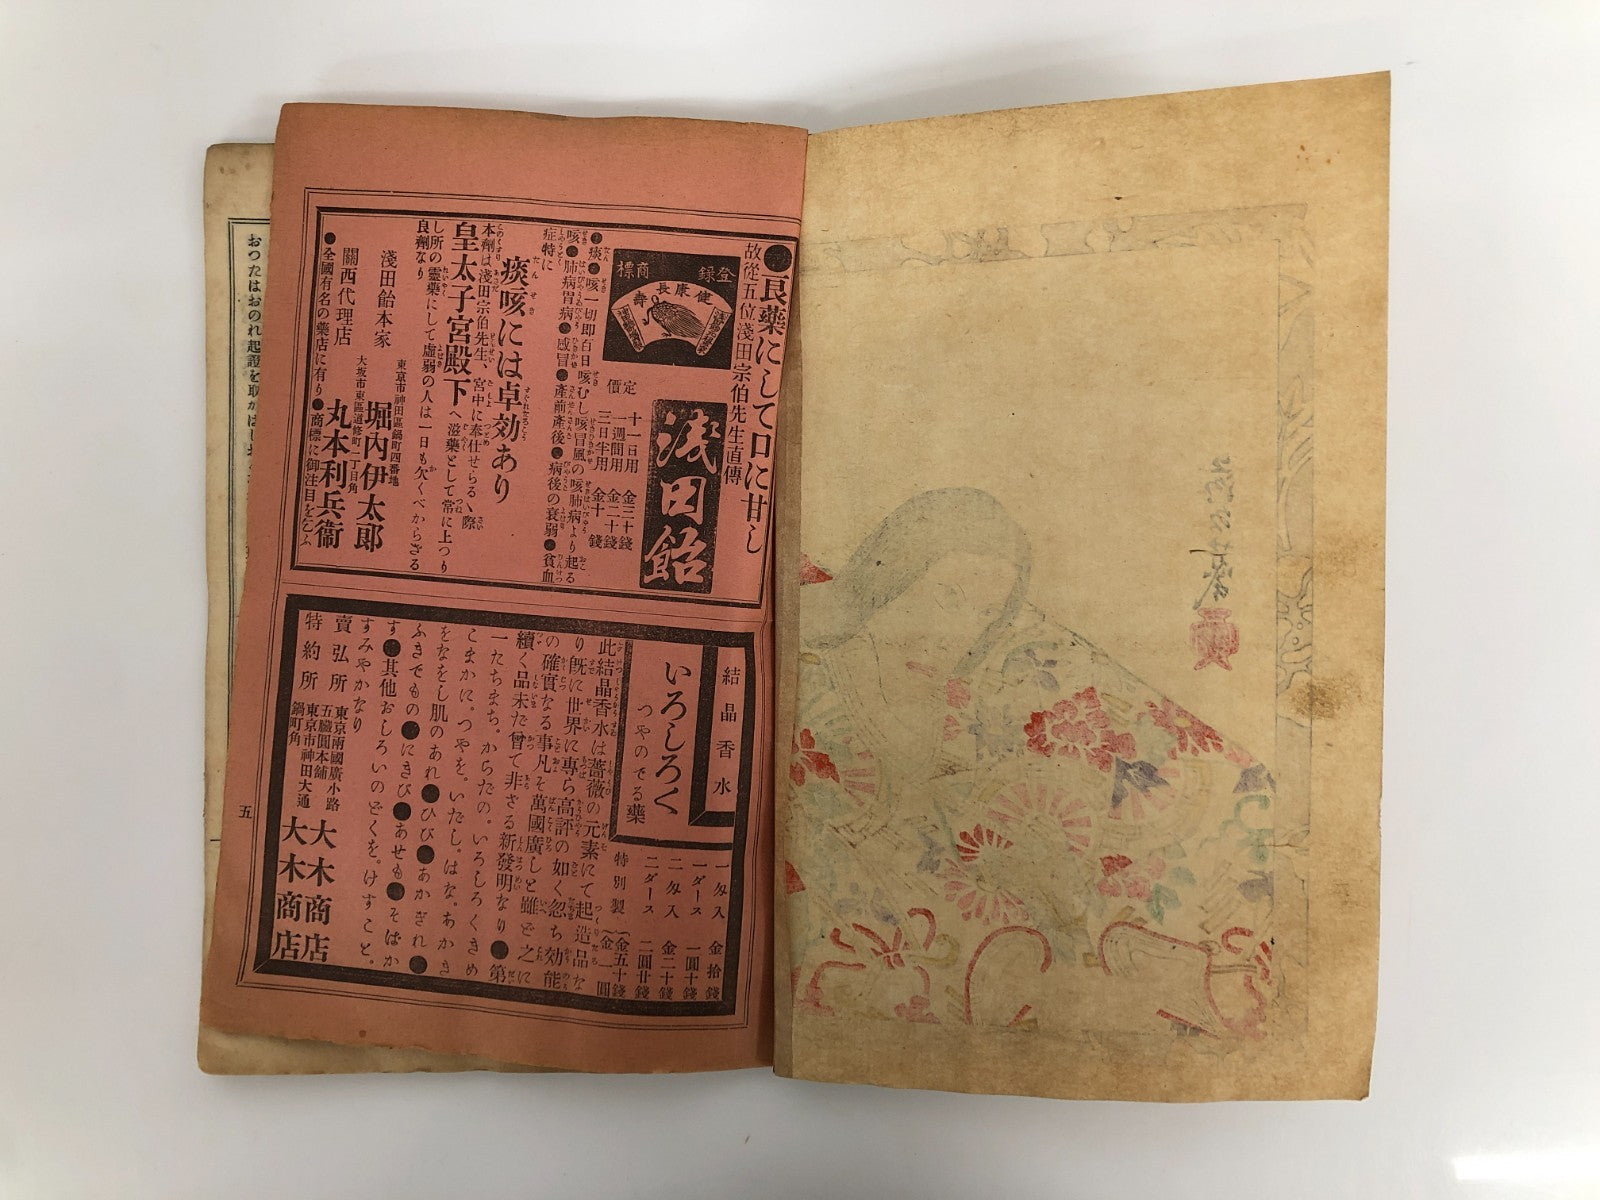 ●良藥にして口に甘し
故從五位淺田宗伯先生直傳
登錄商標
健康長壽
淺田飴
定價
十一日用 金三十錢
一週間用 金二十錢
三日半用 金十錢
●痰●咳一切即百日咳むし咳冒風の咳肺病より起る
咳●肺病胃病●感冒●產前產後●病後の衰弱●貧血
症特に
痰咳には卓効あり
本劑は淺田宗伯先生、宮中に奉仕せらるゝ際
皇太子宮殿下へ滋藥として常に上つり
し所の靈藥にして虛弱の人は一日も欠くべからざる
良劑なり
淺田飴本家
東京市神田區鍋町四番地
堀內伊太郎
關西代理店
大坂市東區道修町一丁目角
丸本利兵衞
●全國有名の藥店に有り●商標に御注目を乞ふ
結晶香水
いろしろく
つやのでる藥
一匁入 金拾錢
一ダース 一圓十錢
二匁入 金二十錢
二ダース 二圓廿錢
特別製 金五十錢
金一圓
此結晶香水は薔薇の元素にて起造品な
り既に世界に專ら高評の如く忽ち効能
の確實なる事凡そ萬國廣しと雖ど之に
續く品未だ曾て非さる新發明なり●第
一たちまち。からだの。いろしろくきめ
こまかに。つやを。いだし。はな。あかき
をなをし肌のあれ●ひび●あかぎれ●
ふきでもの●にきび●あせも●そばか
す●其他おしろいのどくを。けすこと。
すみやかなり
賣弘所
東京兩國廣小路
五臟圓本舖
大木商店
特約所
東京市神田大通
鍋町角
大木商店
おつたはおのれ起證を取かはし
五